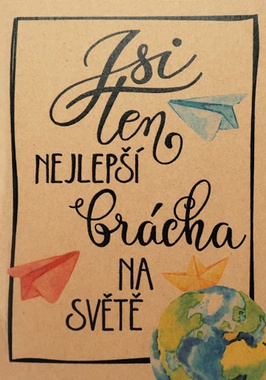 Jsi
ten
NEJLEPŠÍ
brácha
NA
SVĚTĚ